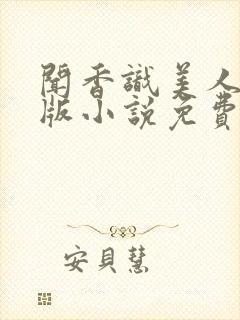 聞香識美人
版小說免費
安貝慧